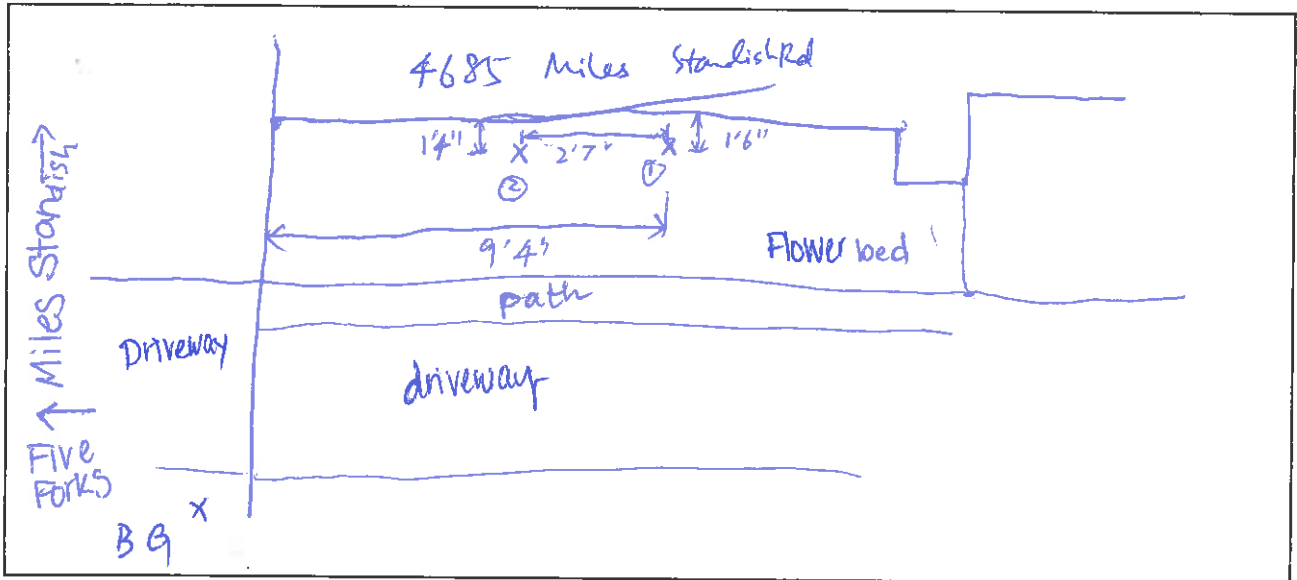 4685 Miles Standish Rd
1'4"
X
2'7"
X
1'6"
②
①
9'4"
Flower bed
path
Driveway
driveway
← Miles Standish →
Five Forks
X
B G